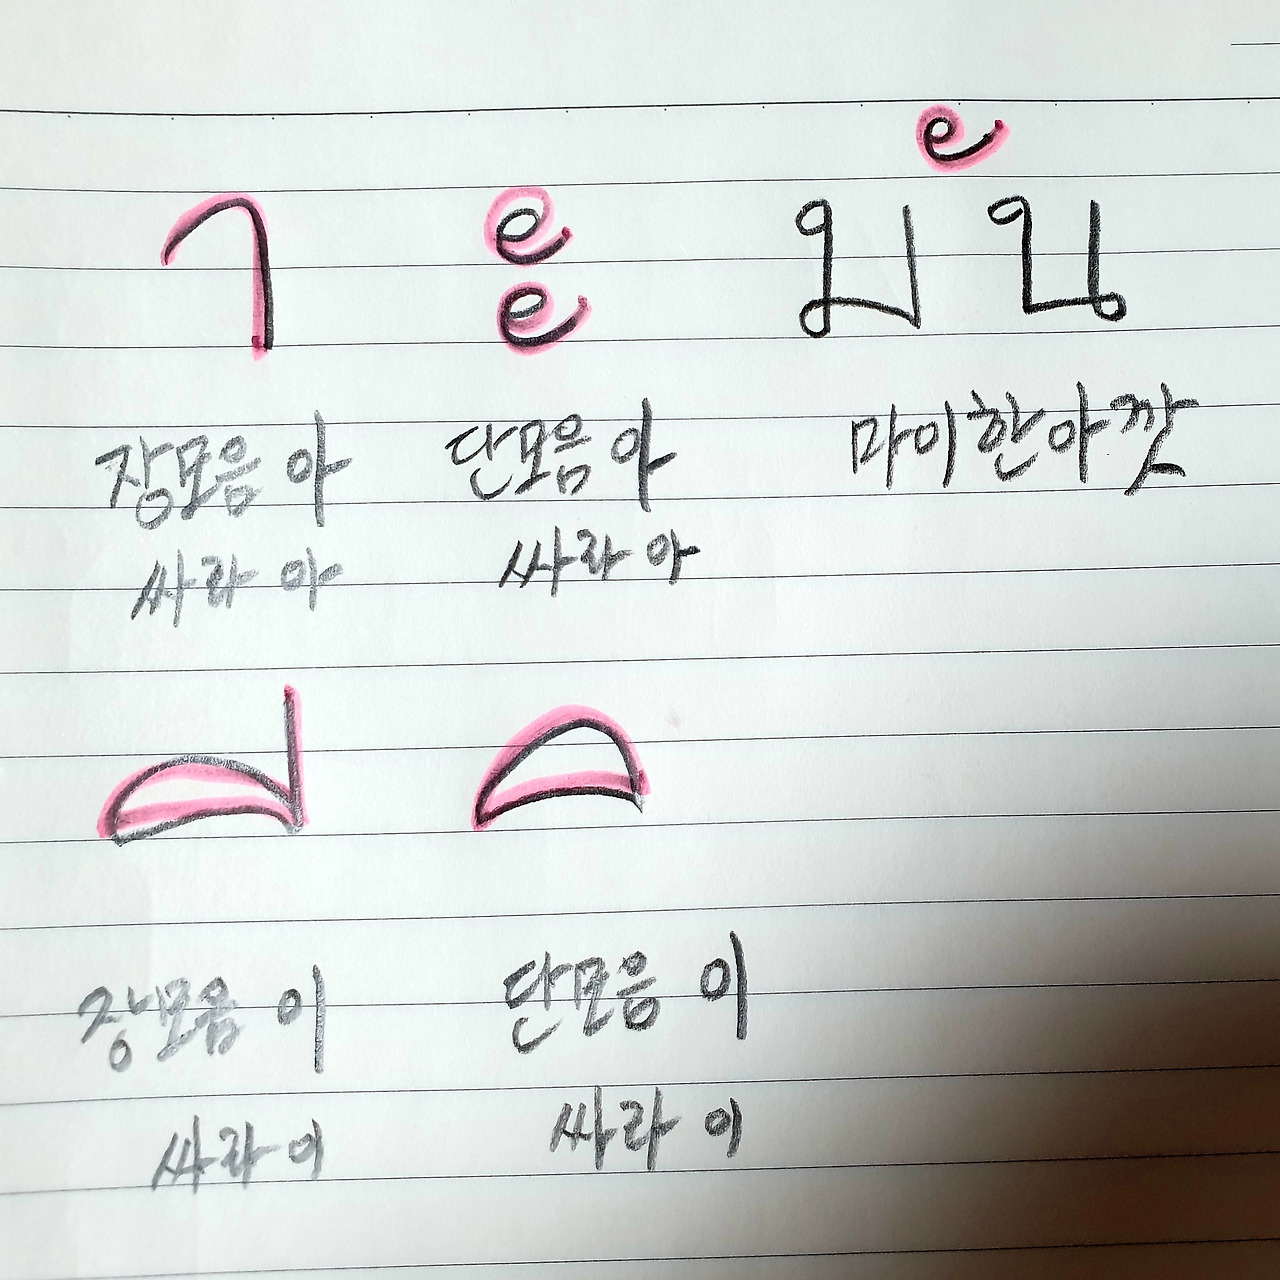 า ะ มัน
장모음 아 단모음 아 마이한아깟
싸라 아 싸라 아
ี ิ
장모음 이 단모음 이
싸라 이 싸라 이